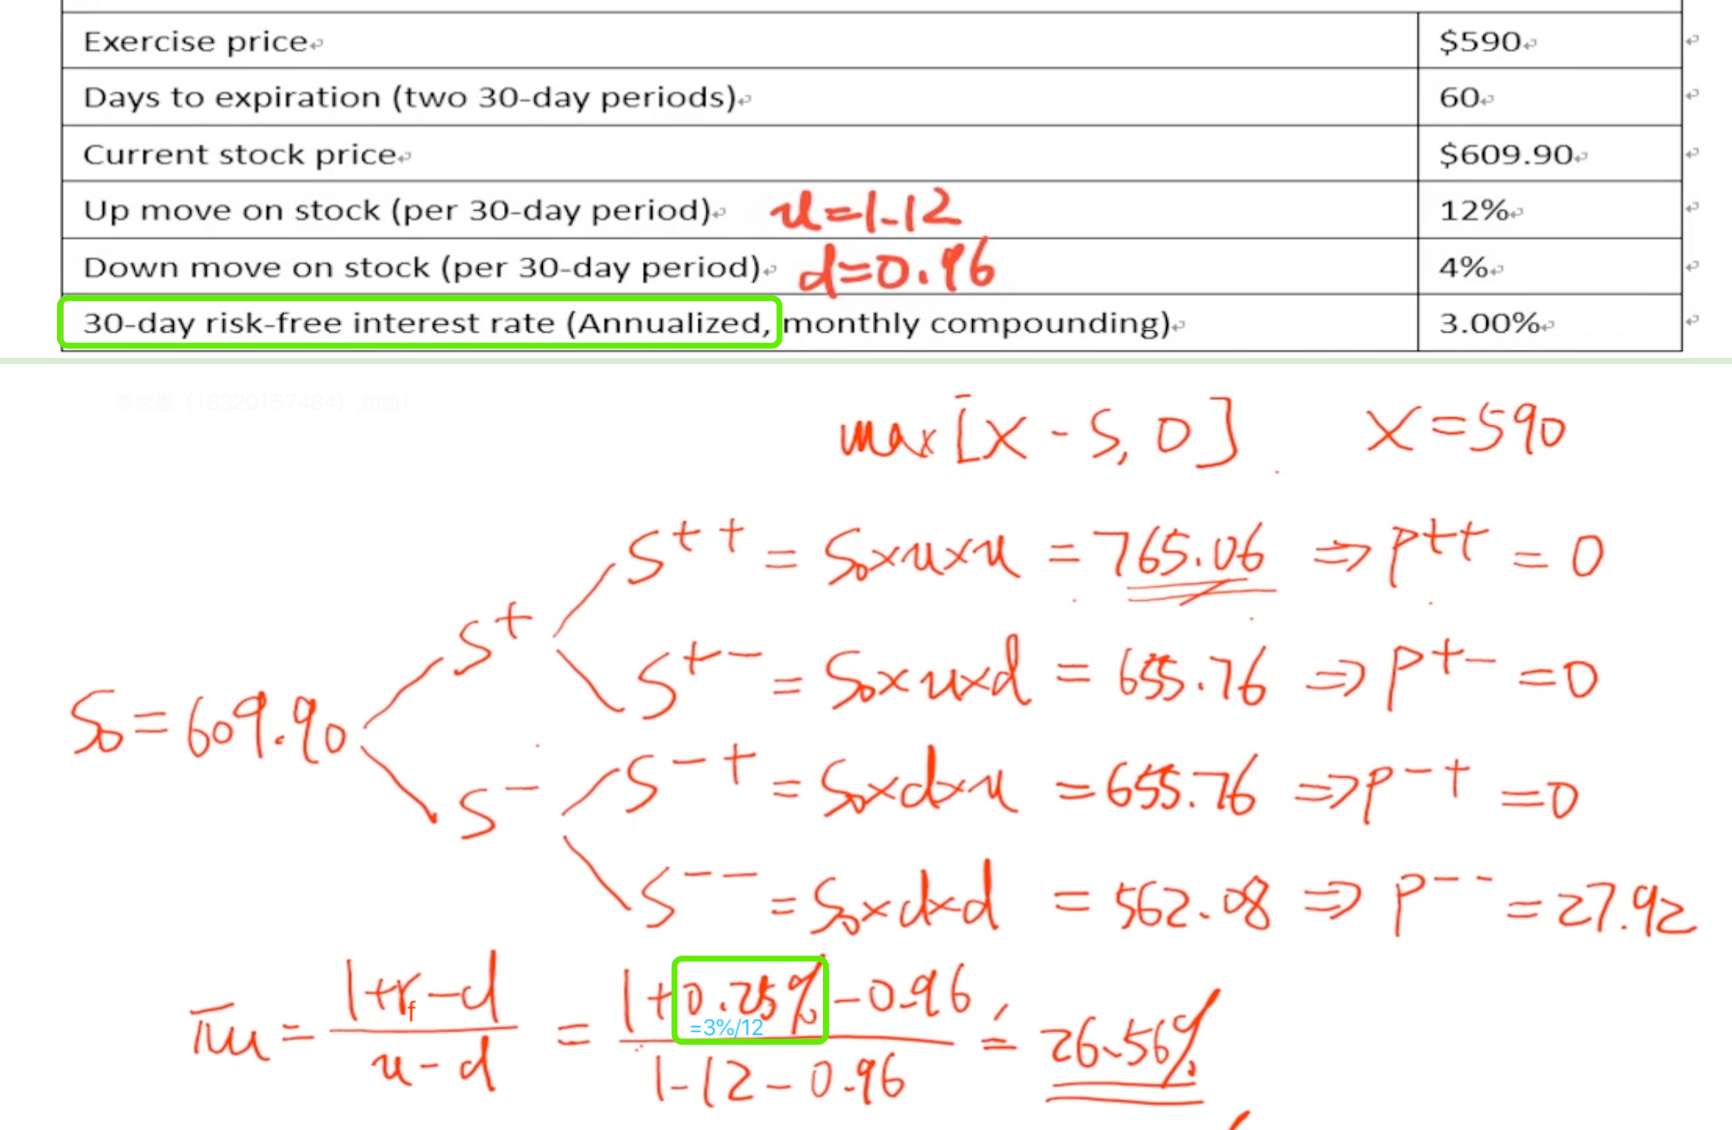 Exercise price↵ $590↵
Days to expiration (two 30-day periods)↵ 60↵
Current stock price↵ $609.90↵
Up move on stock (per 30-day period)↵ u=1.12 12%↵
Down move on stock (per 30-day period)↵ d=0.96 4%↵
30-day risk-free interest rate (Annualized, monthly compounding)↵ 3.00%↵
max[X-S, 0] X=590
S++ = S0×u×u = 765.06 ⇒ P++ = 0
S+
S+- = S0×u×d = 655.76 ⇒ P+- = 0
S0=609.90
S-+ = S0×d×u = 655.76 ⇒ P-+ = 0
S-
S-- = S0×d×d = 562.08 ⇒ P-- = 27.92
πu = (1+rf-d)/(u-d) = (1+0.25%-0.96)/(1.12-0.96) = 26.56%
=3%/12